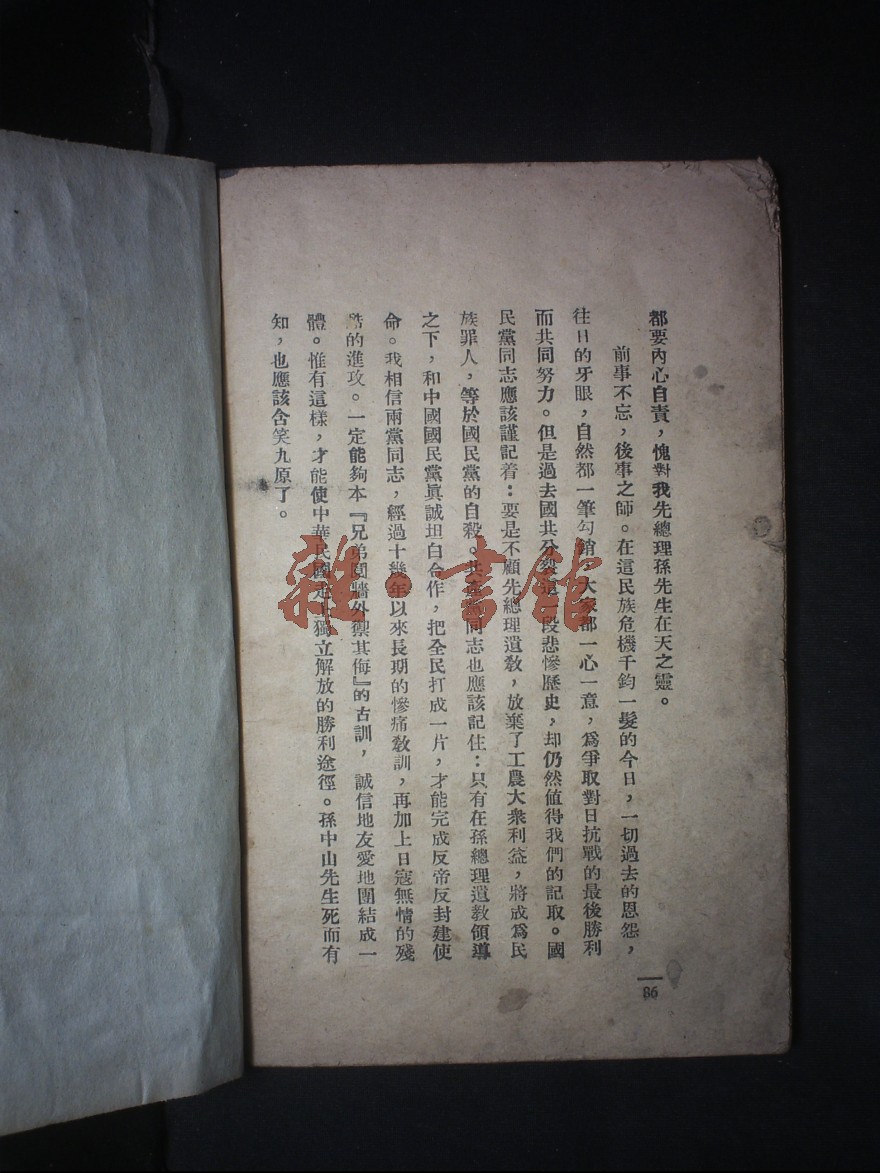 都要內心自責，愧對我先總理孫先生在天之靈。
前事不忘，後事之師。在這民族危機千鈞一髮的今日，一切過去的恩怨，
往日的牙眼，自然都一筆勾銷，大家都一心一意，爲爭取對日抗戰的最後勝利
而共同努力。但是過去國共分裂這一段悲慘歷史，却仍然值得我們的記取。國
民黨同志應該謹記着：要是不顧先總理遺敎，放棄了工農大衆利益，將成爲民
族罪人，等於國民黨的自殺。共產黨同志也應該記住：只有在孫總理遺敎領導
之下，和中國國民黨眞誠坦白合作，把全民打成一片，才能完成反帝反封建使
命。我相信兩黨同志，經過十幾年以來長期的慘痛敎訓，再加上日寇無情的殘
酷的進攻。一定能夠本『兄弟鬩牆外禦其侮』的古訓，誠信地友愛地團結成一
體。惟有這樣，才能使中華民國走上獨立解放的勝利途徑。孫中山先生死而有
知，也應該含笑九原了。
86
雜·書館